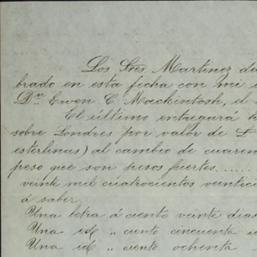 Los Sres Martinez de
brado en esta fecha con mi
Dn. Ewen C. Mackintosh, el
El último entregará
sobre Londres por valor de £
esterlinas) al cambio de cuaren
peso que son pesos fuertes......
veinte mil cuatrocientos veintici
á saber,
Una letra á ciento veinte dias
Una id „ ciento cincuenta i
Una id „ ciento ochenta